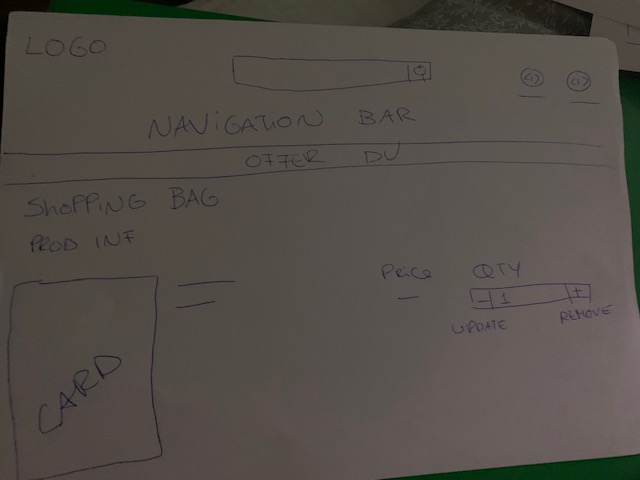 LOGO
NAVIGATION BAR
OFFER DU
SHOPPING BAG
PROD INF
Price QTY
- 1 +
UPDATE REMOVE
CARD